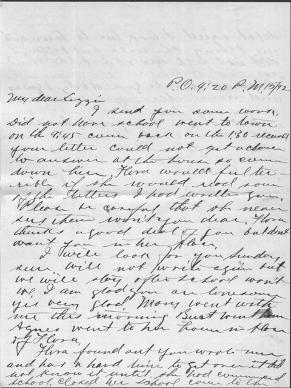 P.O. 4:20 P.M. 15/02
My dear Lizzie
I send you some work
Did not have school went to town
on the 9:45 came back on the 1:30 received
your letter could not get a chance
to answer at the house so came
down here, Flora would feel ter
rible if she would read some
of the letters I have written you,
Please be careful that she never
sees them won't you dear Flora
thinks a good deal of you but dont
want you in her place
I will look for you Sunday
sure will not write again but
we will stay after school wont
we, I am glad you are lonesome
yes very glad Mary went with
me this morning Burt went then
Agnes went to her home in place
of Flora,
Flora found out you wrote me
and has a hard time to get over it did
not know it until she
school, closed her school